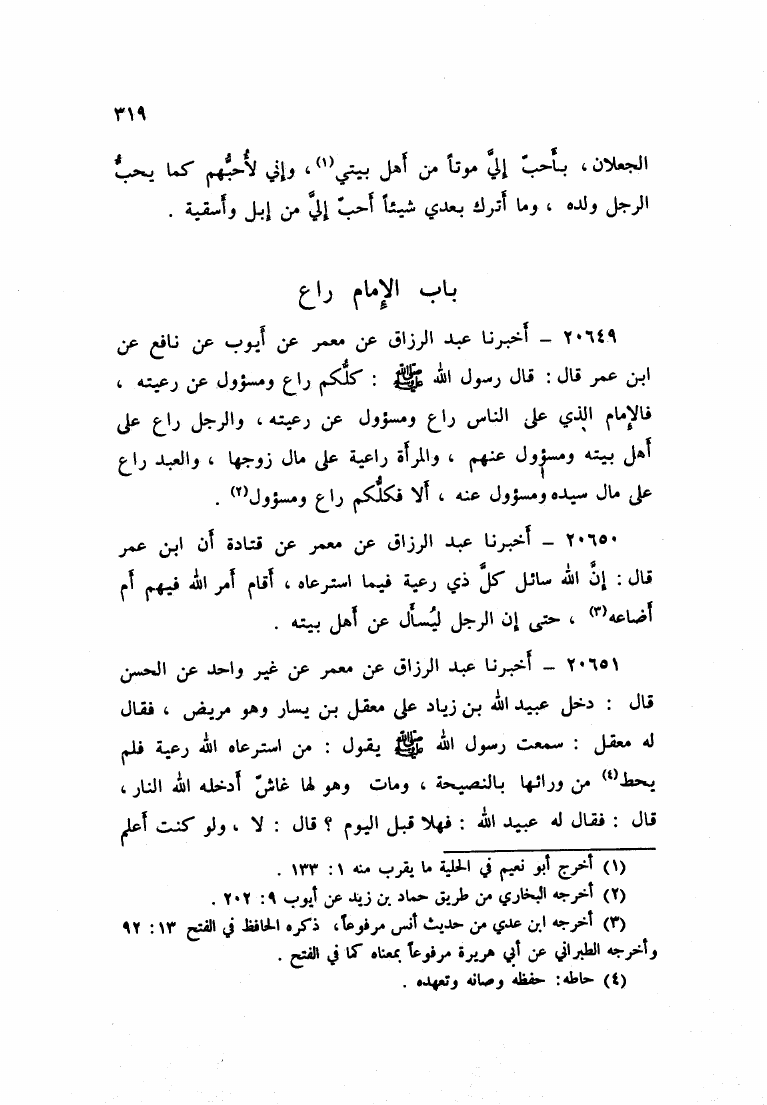 ٣١٩
الجعلان ، بأَحبّ إليَّ موتاً من أهل بيتي(١) ، وإني لأُحبُّهم كما يحبُّ
الرجل ولده ، وما أترك بعدي شيئاً أحبّ إليَّ من إبل وأسقية .
باب الإمام راع
٢٠٦٤٩ – أخبرنا عبد الرزاق عن معمر عن أيوب عن نافع عن
ابن عمر قال : قال رسول الله ﷺ : كلُّكم راع ومسؤول عن رعيته ،
فالإمام الذي على الناس راع ومسؤول عن رعيته ، والرجل راع على
أهل بيته ومسؤول عنهم ، والمرأة راعية على مال زوجها ، والعبد راع
على مال سيده ومسؤول عنه ، ألا فكلُّكم راع ومسؤول(٢) .
٢٠٦٥٠ – أخبرنا عبد الرزاق عن معمر عن قتادة أن ابن عمر
قال : إنَّ الله سائل كلَّ ذي رعية فيما استرعاه ، أقام أمر الله فيهم أم
أضاعه(٣) ، حتى إن الرجل ليُسأل عن أهل بيته .
٢٠٦٥١ – أخبرنا عبد الرزاق عن معمر عن غير واحد عن الحسن
قال : دخل عبيد الله بن زياد على معقل بن يسار وهو مريض ، فقال
له معقل : سمعت رسول الله ﷺ يقول : من استرعاه الله رعية فلم
يحط(٤) من ورائها بالنصيحة ، ومات وهو لها غاشّ أدخله الله النار ،
قال : فقال له عبيد الله : فهلا قبل اليوم ؟ قال : لا ، ولو كنت أعلم
(١) أخرج أبو نعيم في الحلية ما يقرب منه ١ : ١٣٣ .
(٢) أخرجه البخاري من طريق حماد بن زيد عن أيوب ٩ : ٢٠٢ .
(٣) أخرجه ابن عدي من حديث أنس مرفوعاً ، ذكره الحافظ في الفتح ١٣ : ٩٢
وأخرجه الطبراني عن أبي هريرة مرفوعاً بمعناه كما في الفتح .
(٤) حاطه : حفظه وصانه وتعهده .